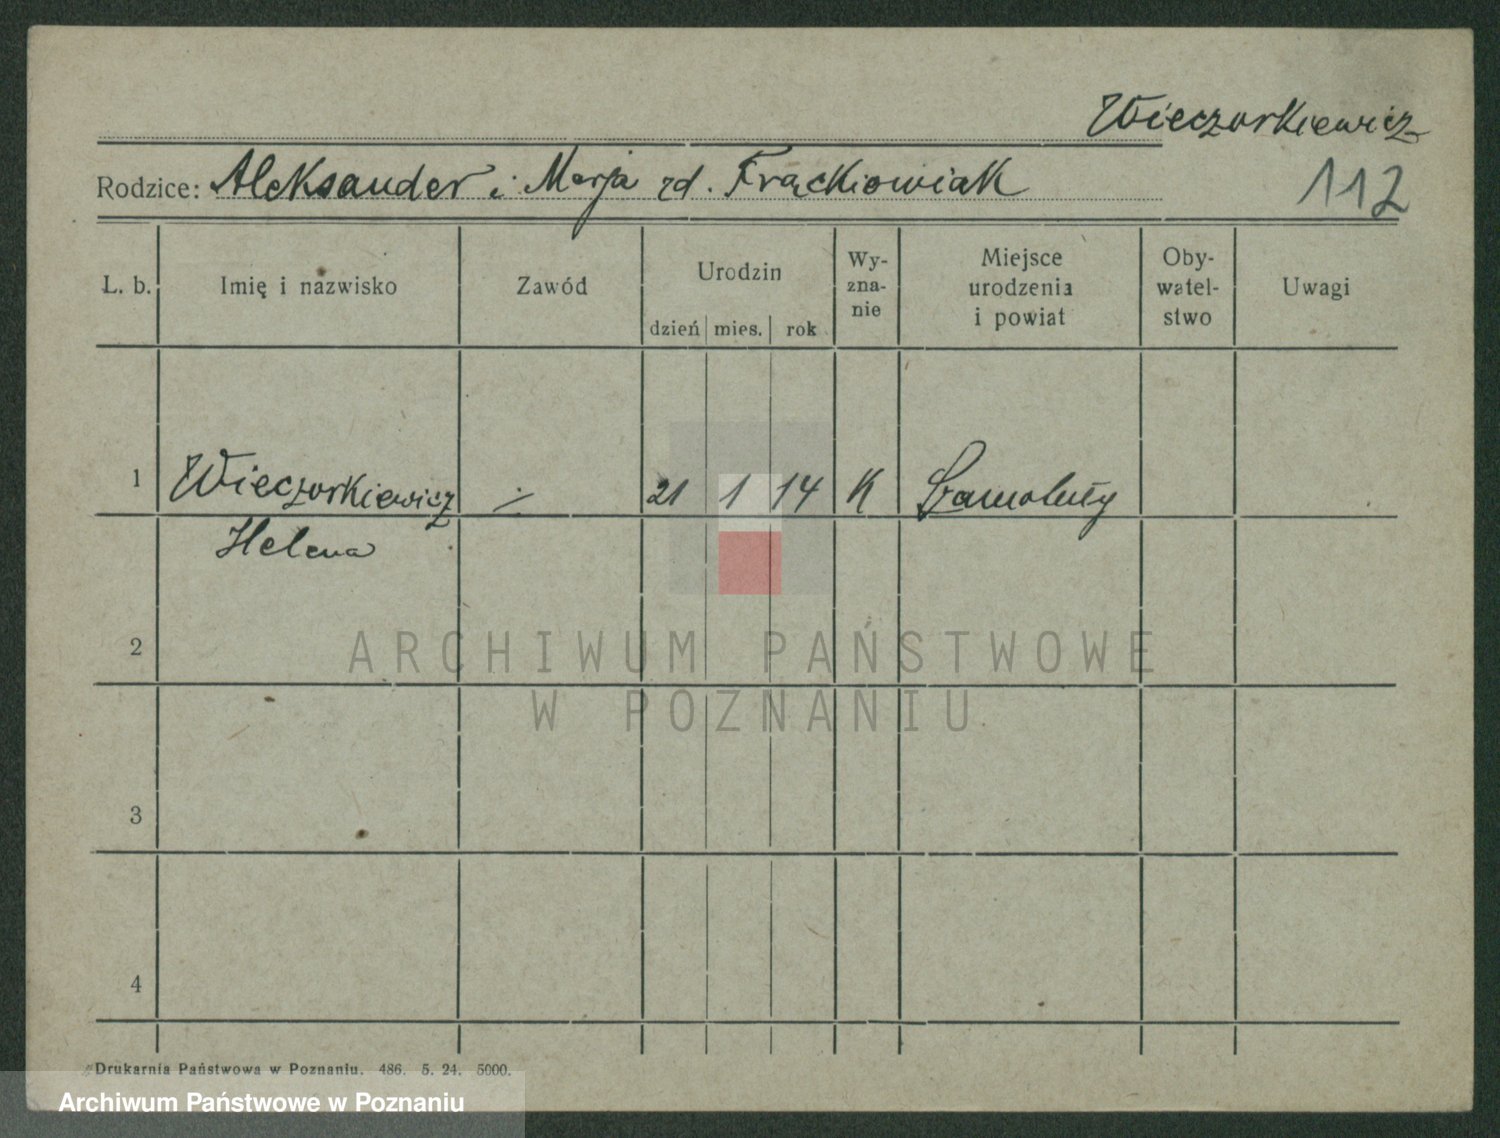 Wieczorkiewicz
Rodzice: Aleksander i Marja zd. Frąckiowiak
112
L. b. Imię i nazwisko Zawód Urodzin dzień mies. rok Wy-zna-nie Miejsce urodzenia i powiat Oby-watel-stwo Uwagi
1 Wieczorkiewicz ÷ 21 1 14 K Szamotuły
Helena
2
ARCHIWUM PAŃSTWOWE
W POZNANIU
3
4
Drukarnia Państwowa w Poznaniu. 486. 5. 24. 5000.
Archiwum Państwowe w Poznaniu